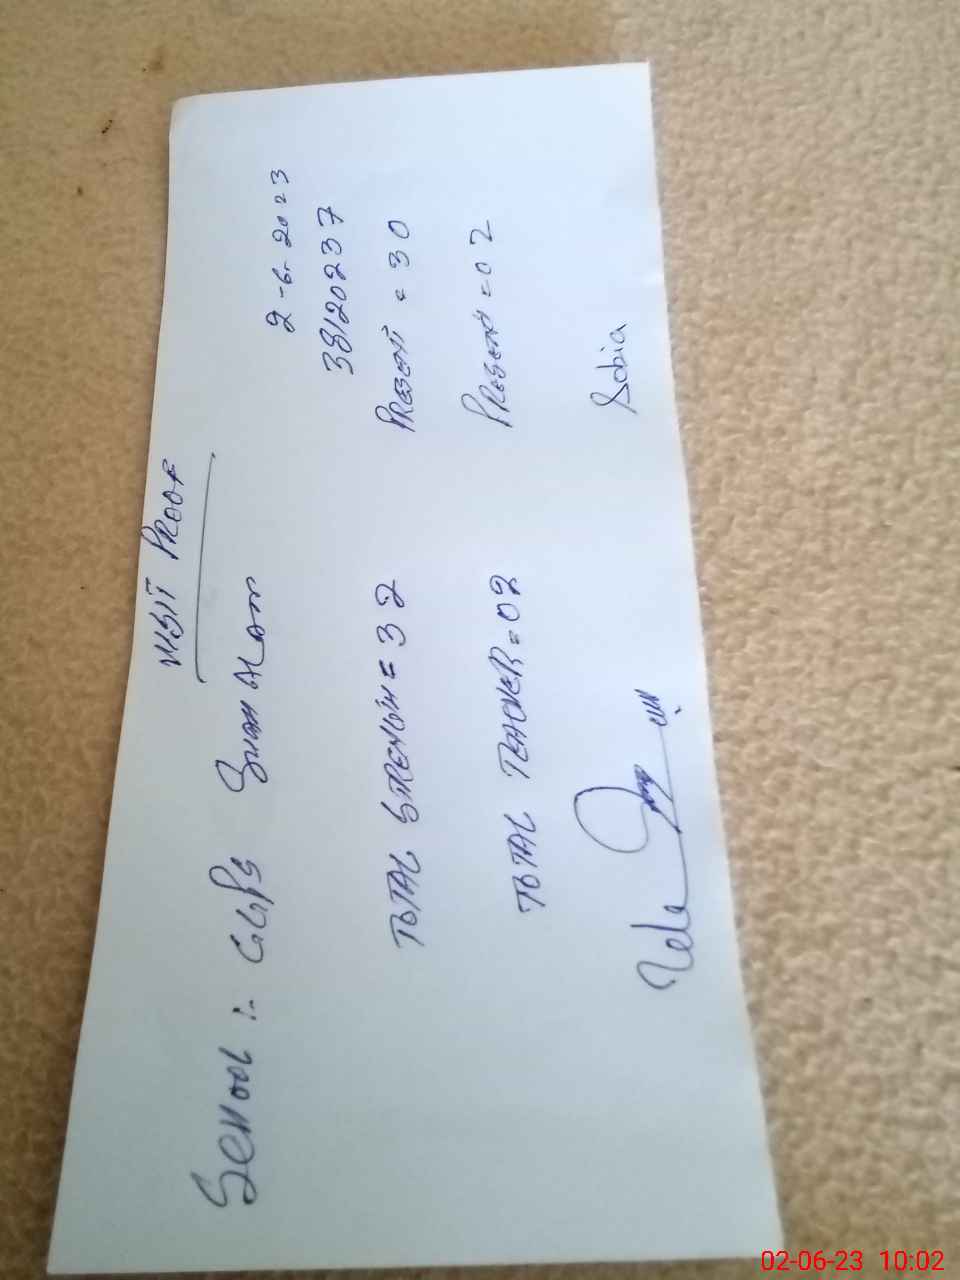 VISIT PROOF
2-6-2023
SCHOOL :- GGPS
38120237
TOTAL STRENGTH = 32 PRESENT = 30
TOTAL TEACHER = 02 PRESENT = 02
Sobia
02-06-23 10:02